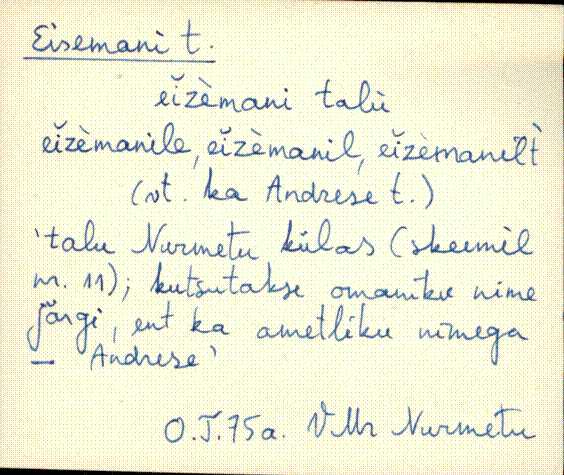 Eisemani t.
eĭzèmani talù
eĭzèmanile, eĭzèmanil, eĭzèmanilt̀
(vt. ka Andrese t.)
'talu Nurmetu külas (skeemil
nr. 11); kutsutakse omaniku nime
järgi, ent ka ametliku nimega
– Andrese'
O.T. 75a. VMr Nurmetu